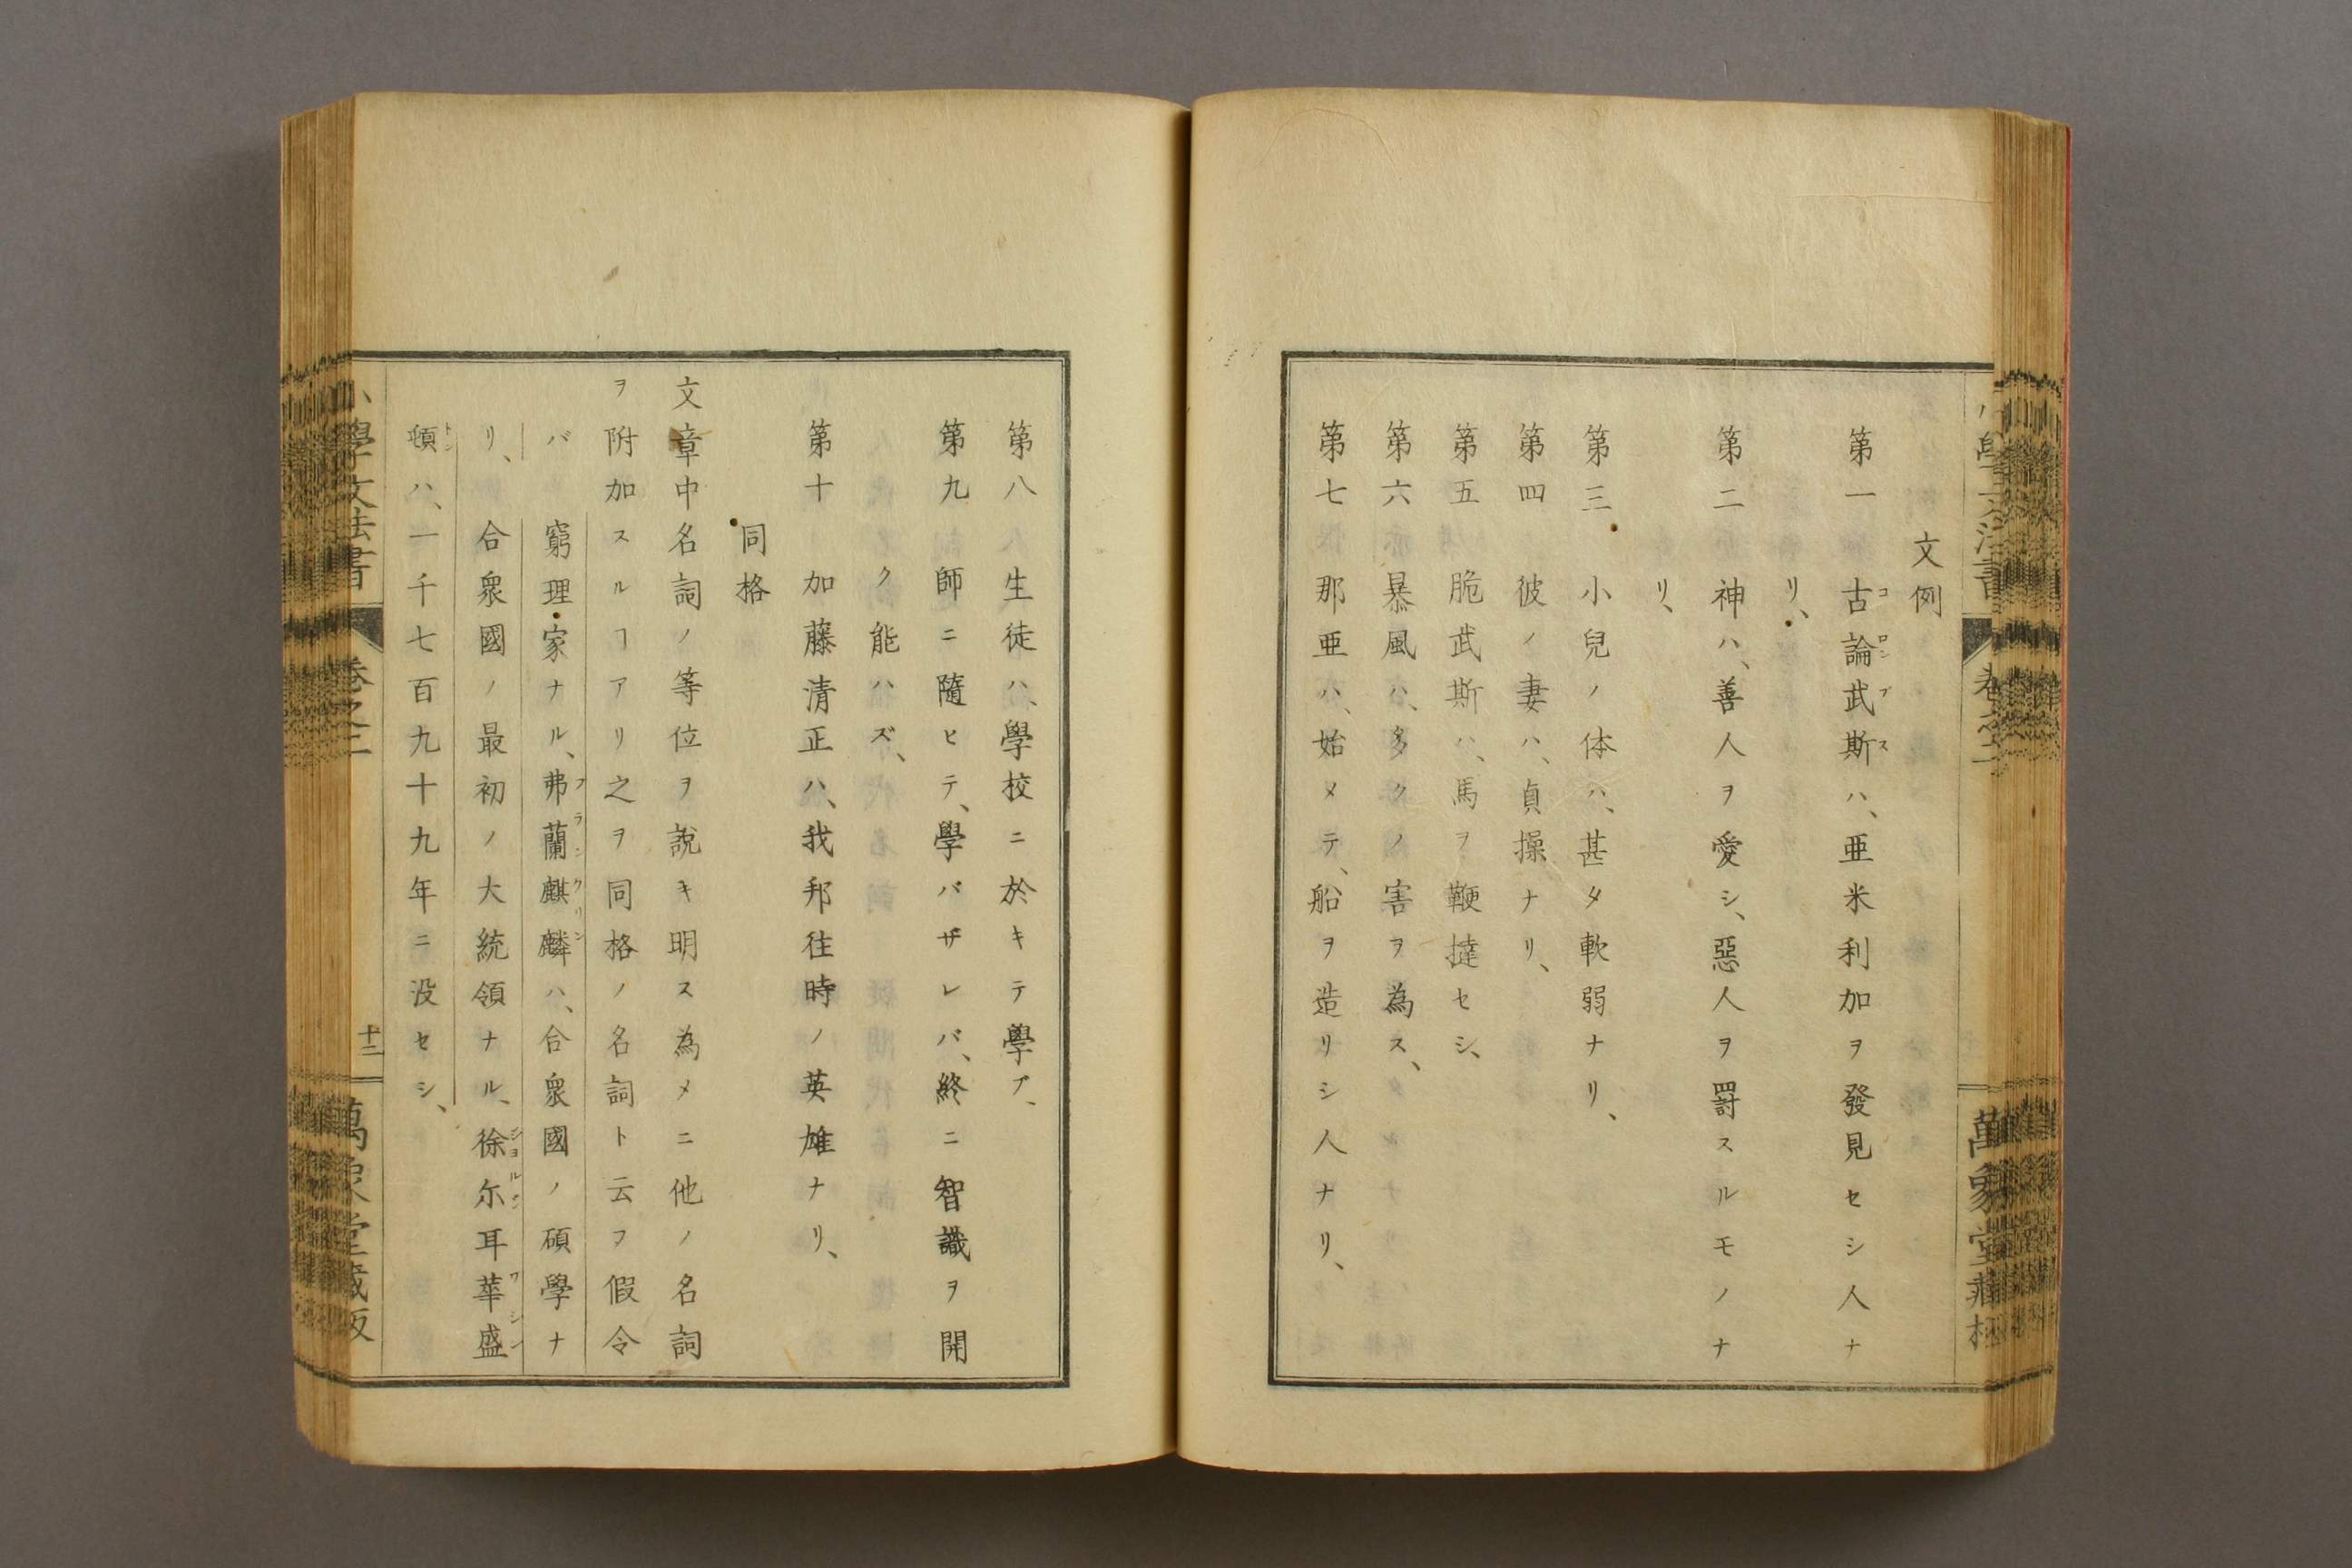 文例
第一 古論武斯ハ、亜米利加ヲ發見セシ人ナ
リ、
第二 神ハ、善人ヲ愛シ、惡人ヲ罰スルモノナ
リ、
第三 小兒ノ体ハ、甚タ軟弱ナリ、
第四 彼ノ妻ハ、貞操ナリ、
第五 脆武斯ハ、馬ヲ鞭撻セシ、
第六 暴風ハ、多クノ害ヲ為ス、
第七 那亜ハ、始メテ、船ヲ造リシ人ナリ、
第八 生徒ハ、學校ニ於キテ學ブ、
第九 師ニ隨ヒテ、學バザレバ、終ニ智識ヲ開
ク能ハズ、
第十 加藤清正ハ、我邦往時ノ英雄ナリ、
同格
文章中名詞ノ等位ヲ說キ明ス為メニ他ノ名詞
ヲ附加スルヿアリ之ヲ同格ノ名詞ト云フ假令
バ 窮理家ナル、弗蘭麒麟ハ、合衆國ノ碩學ナ
リ、 合衆國ノ最初ノ大統領ナル、徐尓耳華盛
頓ハ、一千七百九十九年ニ没セシ、
小學文法書 卷之二 十二 萬象堂藏版